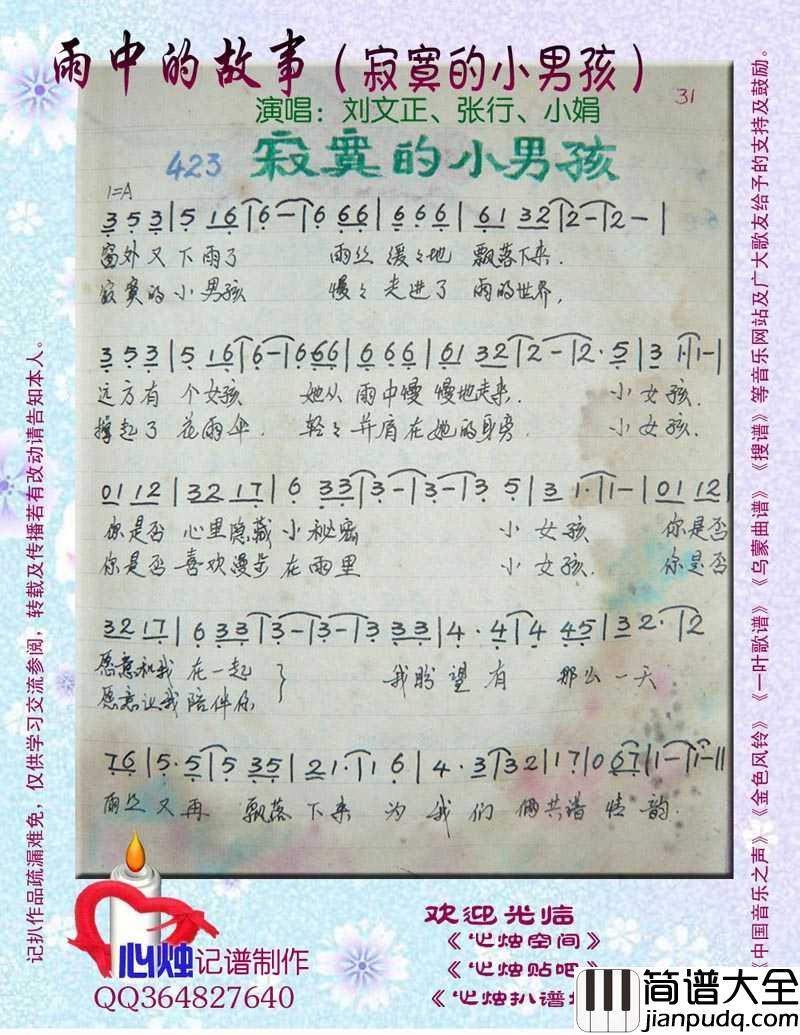 雨中的故事（寂寞的小男孩）
演唱：刘文正、张行、小娟
31
423 寂寞的小男孩
1=A
3 5 3 | 5 1 6 | 6 - | 6 6 6 | 6 6 6 | 6 1 3 2 | 2 - | 2 - |
窗外又下雨了 雨丝缓々地 飘落下来.
寂寞的小男孩 慢々走进了 雨的世界,
3 5 3 | 5 1 6 | 6 - | 6 6 6 | 6 6 6 | 6 1 3 2 | 2 - | 2 · 5 | 3 1 · | 1 - |
远方有个女孩 她从雨中慢慢地走来. 小女孩.
撑起了花雨伞. 轻々并肩在她的身旁 小女孩.
0 1 1 2 | 3 2 1 7 | 6 3 3 | 3 - | 3 - | 3 5 | 3 1 · | 1 - | 0 1 1 2 |
你是否心里隐藏小秘密 小女孩 你是否
你是否喜欢漫步在雨里 小女孩. 你是否
3 2 1 7 | 6 3 3 | 3 - | 3 - | 3 3 3 | 4 · 4 | 4 4 5 | 3 2 · | 2
愿意和我在一起 我盼望有那么一天
愿意让我陪伴你
7 6 | 5 · 5 | 5 3 5 | 2 1 · | 1 6 | 4 · 3 | 3 2 | 1 7 | 0 6 7 | 1 - | 1 - ||
雨丝又再飘落下来为我们俩共谱情韵.
记扒作品疏漏难免，仅供学习交流参阅，转载及传播若有改动请告知本人。
《中国音乐之声》《金色风铃》《一叶歌谱》《乌蒙曲谱》《搜谱》等音乐网站及广大歌友给予的支持及鼓励。
心烛记谱制作
QQ364827640
欢迎光临
《心烛空间》
《心烛贴吧》
《心烛扒谱
简谱大全
jianpudq.com